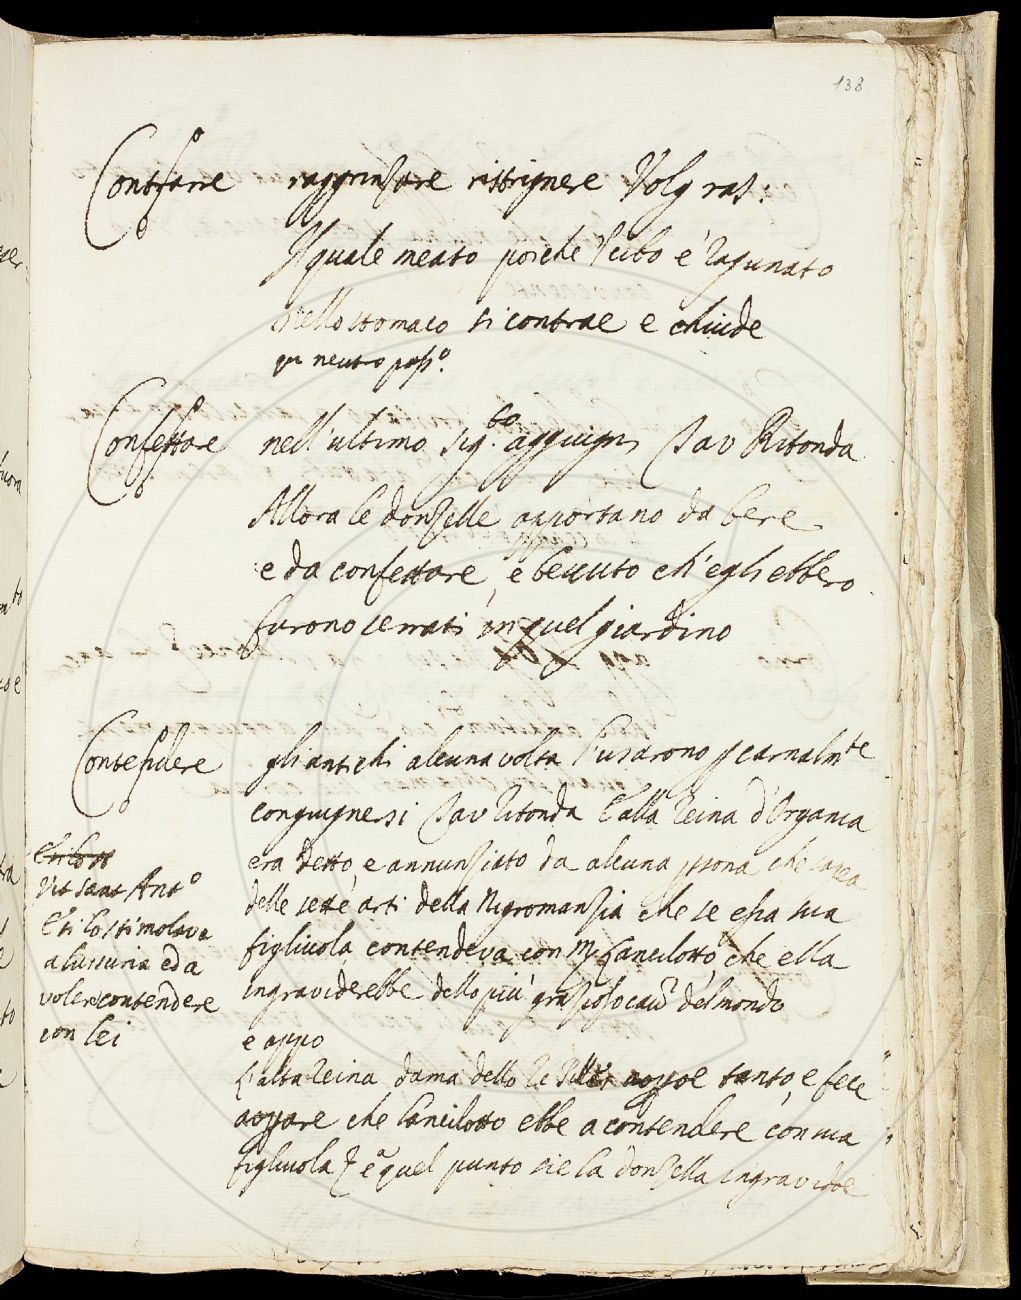 138
Contrarre raggrinzare ristrignere Volg ras:
Il quale meato poiche l'cibo è ragunato
nello stomaco si contrae e chiude
qui neutro pass.º
Confettare nell'ultimo sig.to aggiugni Tav Ritonda
Allora le donzelle apportano da bere
e da confettare, e beuuto ch'egli ebbero
furono serrati in quel giardino
Contendere gli antichi alcuna volta l'usarono p carnalmte
congiugnersi Tav Ritonda E alla Reina d'Organia
era detto, e annunziato da alcuna psona che sapea
delle sette arti della Nigromanzia che se essa sua
figliuola contendeva con M. Lancilotto, che ella
ingraviderebbe dello più grazioso cau.re del mondo
e appo
L'alta Reina dama dello Re aoproe tanto, e fece
aoprare che Lancilotto ebbe a contendere con sua
figliuola e 'n quel punto sie la donzella ingravidoe
Vit Sant Antº
E sì lo stimolava
a lussuria ed a
volere contendere
con lei